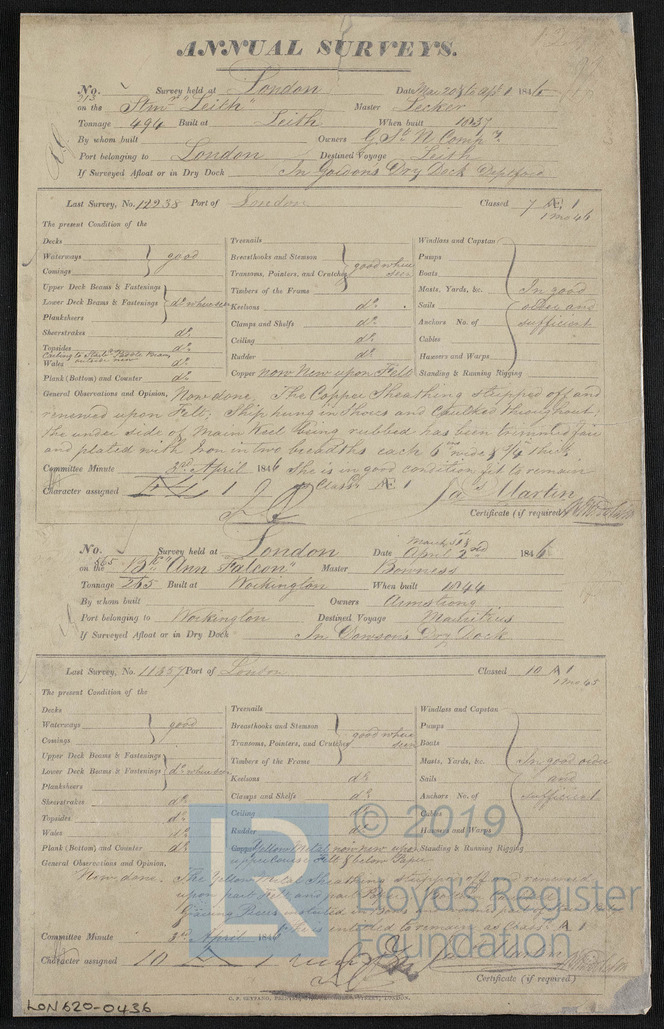 ANNUAL SURVEYS.
No. 213 Survey held at London Date Mar 20 & to Apl 1 1846
on the Stmr "Leith" Master
Tonnage 494 Built at Leith When built 1837
By whom built Owners G. St. N. Compy.
Port belonging to London Destined Voyage Leith
If Surveyed Afloat or in Dry Dock In Gordons Dry Dock Deptford
Last Survey, No. 12938 Port of London Classed 7 Æ 1
1 mo 46
The present Condition of the
Decks
Waterways good
Comings
Upper Deck Beams & Fastenings
Lower Deck Beams & Fastenings do. where seen
Planksheers
Sheerstrakes do.
Topsides do.
Wales do.
Plank (Bottom) and Counter do.
Treenails
Breasthooks and Stemson
Transoms, Pointers, and Crutches good where seen
Timbers of the Frame
Keelsons do.
Clamps and Shelfs do.
Ceiling do.
Rudder do.
Copper now New upon Felt
Windlass and Capstan
Pumps
Boats
Masts, Yards, &c. In good
Sails order and
Anchors No. of sufficient
Cables
Hawsers and Warps
Standing & Running Rigging
General Observations and Opinion, Now done. The Copper Sheathing stripped off and
renewed upon Felt; Ship hung in Shores and Caulked throughout;
the under side of Main Keel being rubbed has been trimmed fair
and plated with Iron in two breadths each 6 ins wide & 3/4 thick
Committee Minute 3rd April 1846 She is in good condition fit to remain
Character assigned 1 Classed Æ 1 Jas Martin
Certificate (if required)
No. 565 Survey held at London Date March 31 & April 2nd 1846
on the Bk "Ann Falcon" Master Bowness
Tonnage 265 Built at Workington When built 1844
By whom built Owners Armstrong
Port belonging to Workington Destined Voyage Mauritius
If Surveyed Afloat or in Dry Dock In Dowsons Dry Dock
Last Survey, No. 11357 Port of London Classed 10 A 1
1 mo 45
The present Condition of the
Decks
Waterways good
Comings
Upper Deck Beams & Fastenings
Lower Deck Beams & Fastenings do. where seen
Planksheers
Sheerstrakes do.
Topsides do.
Wales do.
Plank (Bottom) and Counter do.
Treenails
Breasthooks and Stemson
Transoms, Pointers, and Crutches good where seen
Timbers of the Frame
Keelsons do.
Clamps and Shelfs do.
Ceiling do.
Rudder do.
Copper Yellow Metal now new upon
upper course Felt & below Paper
Windlass and Capstan
Pumps
Boats
Masts, Yards, &c. In good order
Sails and
Anchors No. of sufficient
Cables
Hawsers and Warps
Standing & Running Rigging
General Observations and Opinion,
Now done. The Yellow Metal Sheathing stripped off and renewed
upon part Felt and part Paper
Committee Minute 3rd April 1846 entitled to remain as Classed A 1
Character assigned 10 A 1 Martin
Certificate (if required)
© 2019
Lloyd's Register
Foundation
LON620-0436